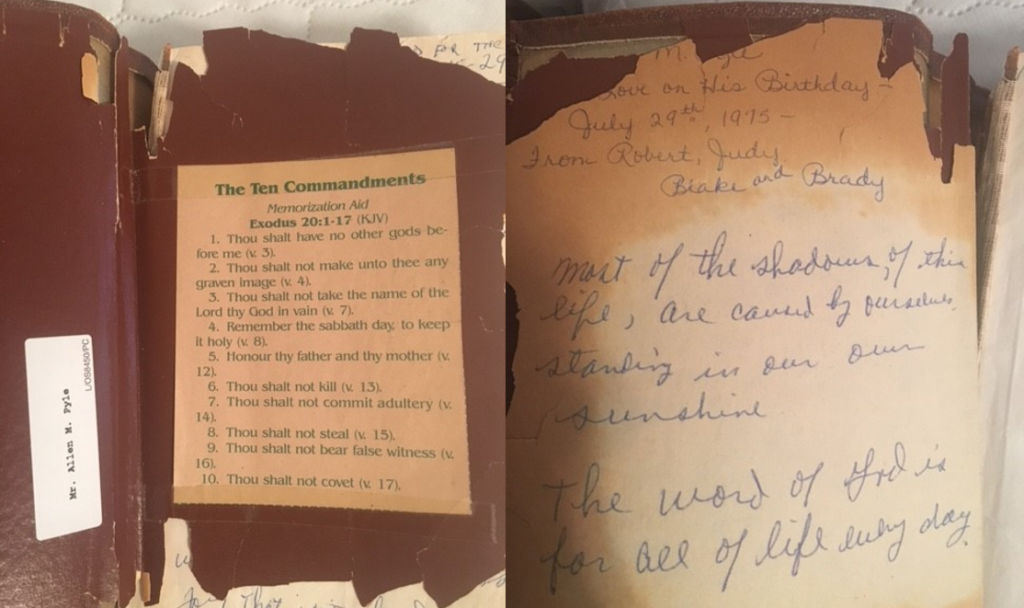 D FOR THE
- 29
The Ten Commandments
Memorization Aid
Exodus 20:1-17 (KJV)
1. Thou shalt have no other gods be-
fore me (v. 3).
2. Thou shalt not make unto thee any
graven image (v. 4).
3. Thou shalt not take the name of the
Lord thy God in vain (v. 7).
4. Remember the sabbath day, to keep
it holy (v. 8).
5. Honour thy father and thy mother (v.
12).
6. Thou shalt not kill (v. 13).
7. Thou shalt not commit adultery (v.
14).
8. Thou shalt not steal (v. 15).
9. Thou shalt not bear false witness (v.
16).
10. Thou shalt not covet (v. 17).
Mr. Allen M. Pyle
L/OS8450/PC
Love on His Birthday -
July 29th, 1975 -
From Robert, Judy
Blake and Brady
most of the shadows, of this
life, are caused by ourselves
standing in our own
sunshine
The word of God is
for all of life every day.